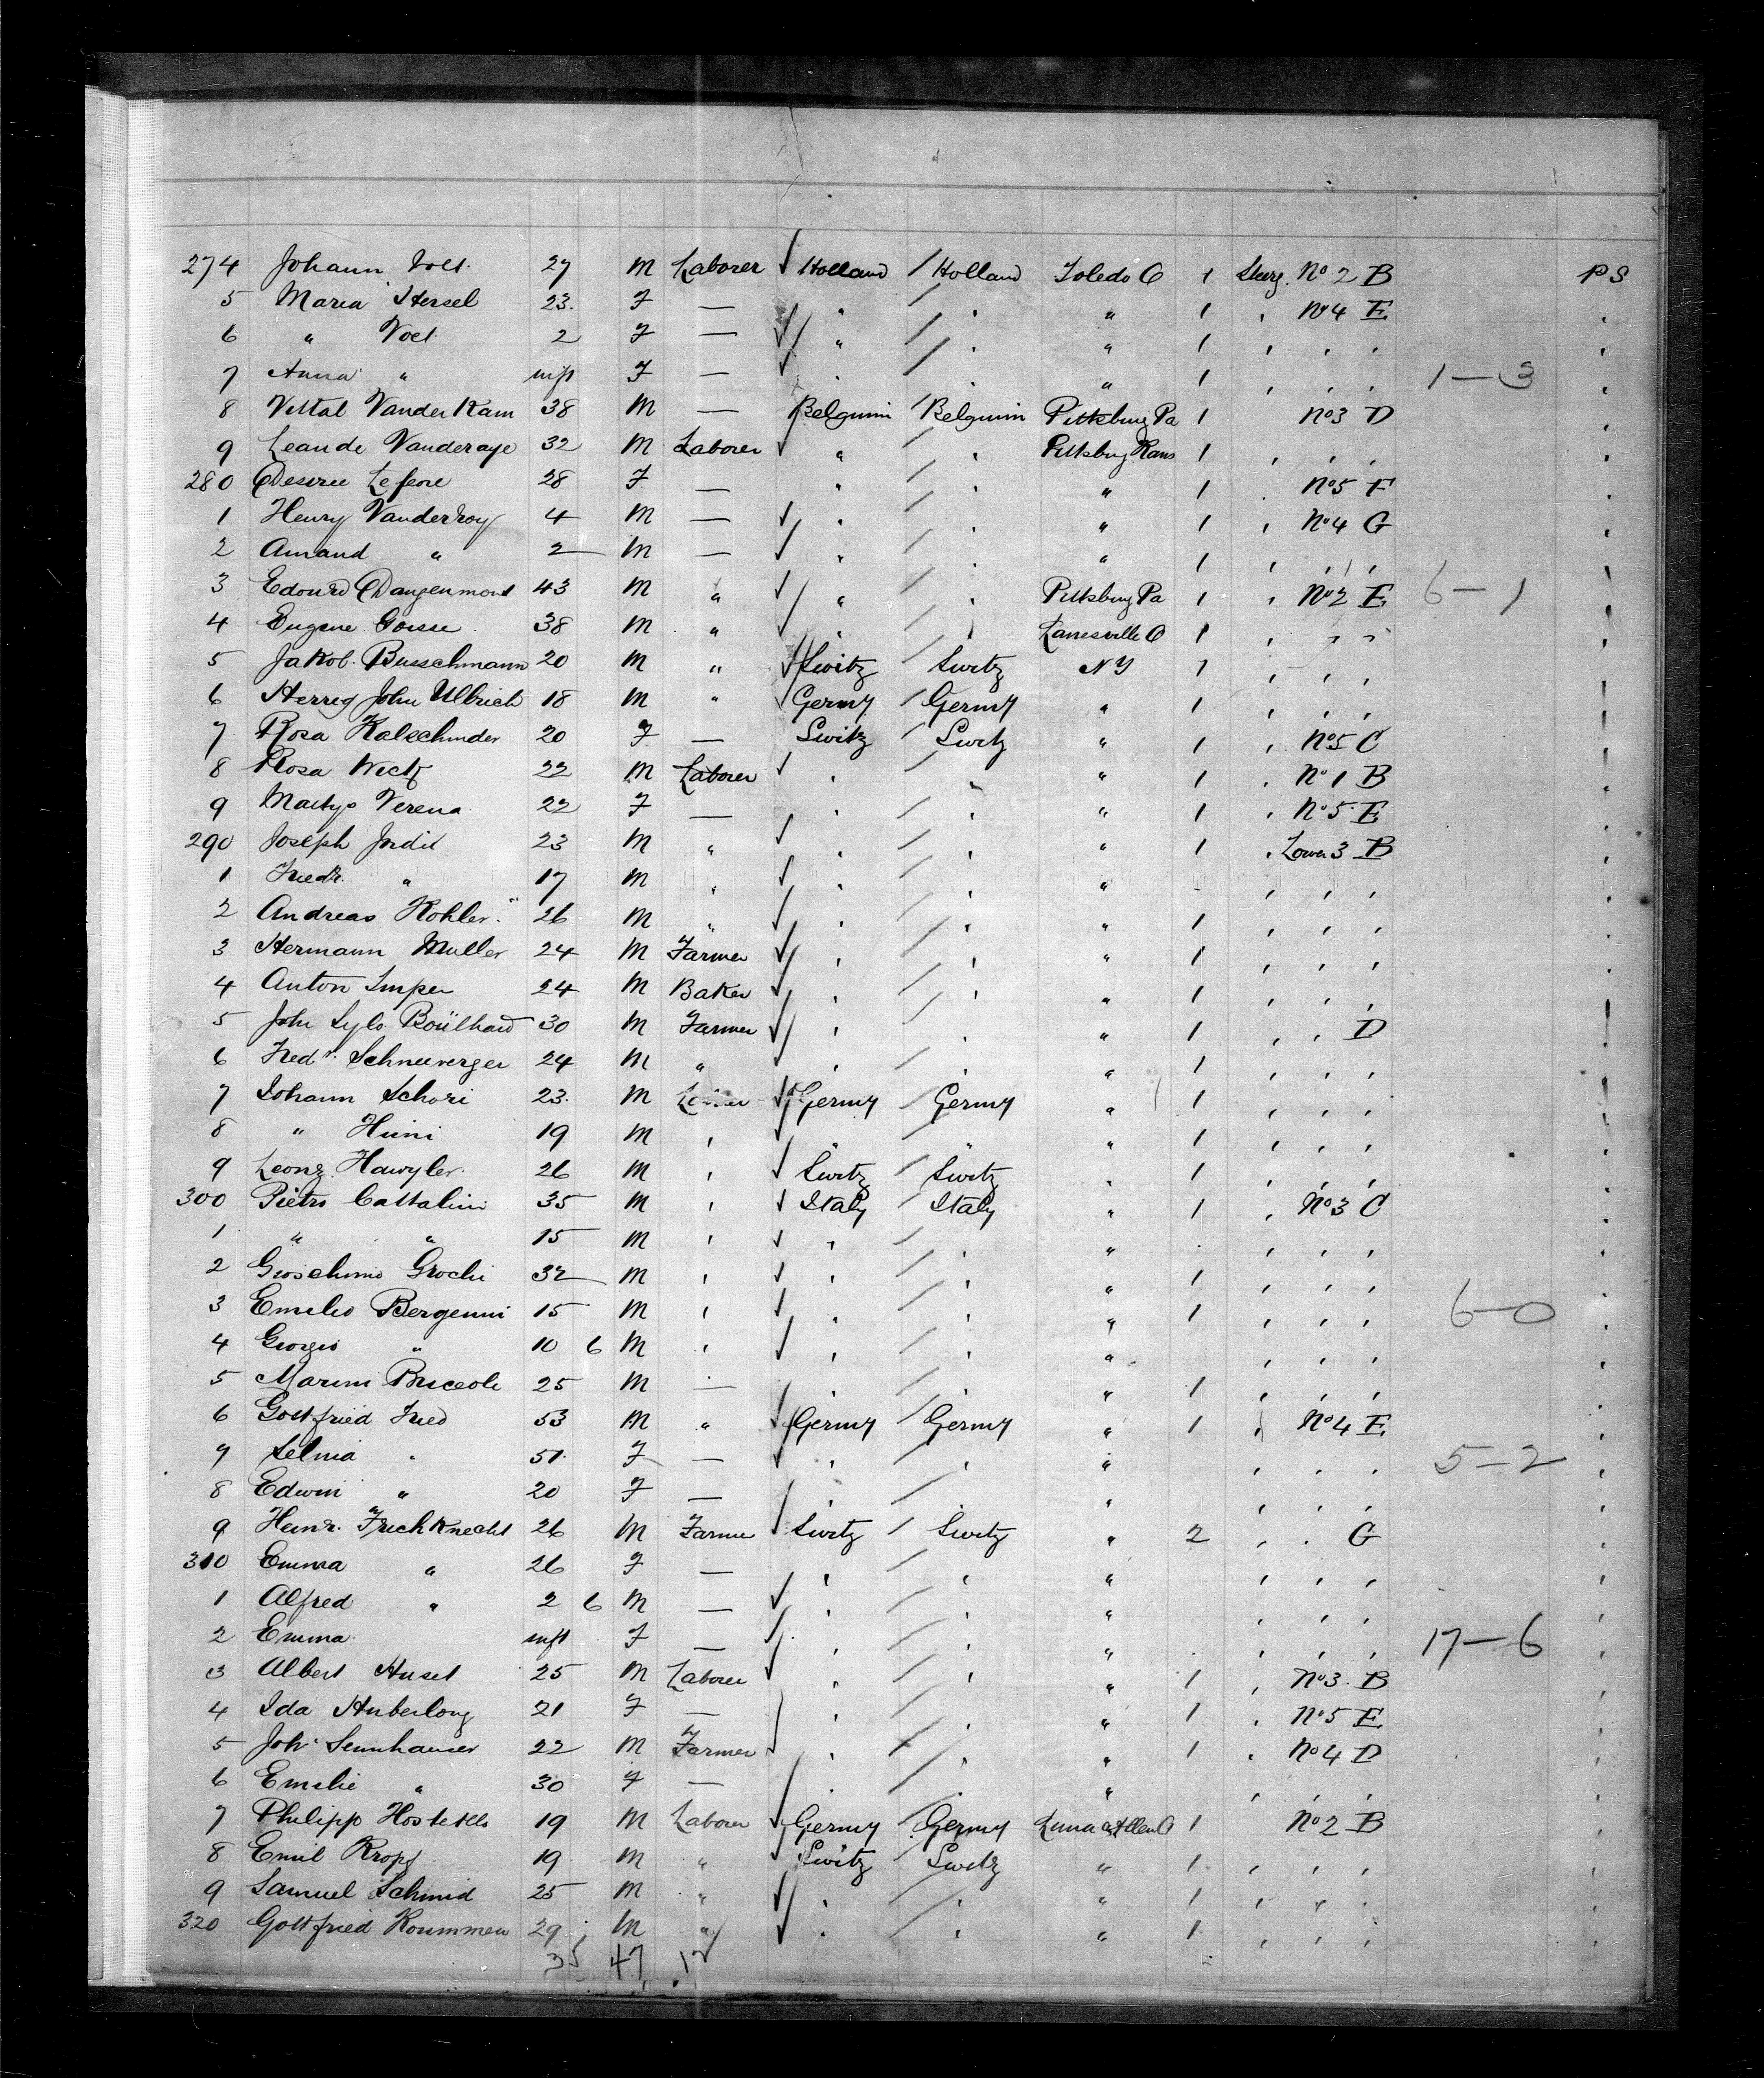 274 Johann Voet. 27 M Laborer Holland Holland Toledo O 1 Steerg. No 2 B PS
5 Maria Hersel 23. F — " " " 1 " No 4 E "
6 " Voet 2 F — " " " 1 " " " "
7 Anna " inft F — " " " 1 " " " 1—3 "
8 Vander Kam 38 M — Belguim Belguim Pittsburg Pa 1 No 3 D "
9 Leande Vanderaye 32 M Laborer " " Pittsburg Kans 1 " " " "
280 Desiree Lefevre 28 F — " " " 1 " No 5 F "
1 Henry Vanderhoy 4 M — " " " 1 " No 4 G "
2 Amand " 2 M — " " " 1 " " " "
3 Edourd Dangenmont 43 M " " " Pittsburg Pa 1 " No 2 E 6—1
4 Eugene Gosse 38 M " " " Zanesville O 1 " " "
5 Jakob. Busschmann 20 M " Switz Switz NY 1 " " "
6 Herreg John Ullrich 18 M " Germy Germy " 1 " " "
7 Rosa Kalschmder 20 F — Switz Switz " 1 " No 5 C
8 Rosa Weck 22 M Laborer " " " 1 " No 1 B "
9 Martys Verena 22 F — " " " 1 " No 5 E "
290 Joseph Jordil 23 M " " " " 1 " Lower 3 B "
1 Friedr. " 17 M " " " " - " " " "
2 Andreas Kohler 26 M " " " " 1 " " " "
3 Hermann Muller 24 M Farmer " " " 1 " " " "
4 Anton 24 M Baker " " " 1 " " " "
5 John 30 M Farmer " " " 1 " " D
6 Fredr. Schneeverger 24 M " " " " 1 " " " "
7 Johann Schori 23. M Germy Germy " 1 " " "
8 " Huni 19 M " " " " 1 " " " "
9 Leonz Hawyler. 26 M " Switz Switz " 1 " " " "
300 Pietro Cattalini 35 M " Italy Italy " 1 " No 3 C "
1 " " 15 M " " " " " " " "
2 Grochi 32 M " " " " 1 " " " "
3 Emilio Bergenni 15 M " " " " 1 " " " 6—0 "
4 Giorgio " 10 6 M " " " " " " " "
5 25 M — " " " 1 " " " "
6 Gottfried Fried 53 M " Germy Germy " 1 " No 4 E "
7 Selma " 51. F — " " " " " " 5—2 "
8 Edwin " 20 F — " " " " " " "
9 Heinr. Frichknecht 26 M Farmer Switz Switz " 2 " " G "
310 Emma " 26 F — " " " " " " "
1 Alfred " 2 6 M — " " " " " " "
2 Emma inft F — " " " " " " 17—6 "
3 Albert Huset 25 M Laborer " " " 1 " No 3. B "
4 Ida Huberlong 21 F — " " " 1 " No 5 E "
5 Joh. Sennhauser 22 M Farmer " " " 1 " No 4 D "
6 Emilie " 30 F — " " " " " " "
7 Philipp Hostettls 19 M Laborer Germy Germy 1 No 2 B "
8 Emil Kropf 19 M " Switz Switz " 1 " " " "
9 Samuel Schmid 25 M " " " " 1 " " " "
320 Gottfried Roummen 29 M " " " " 1 " " " "
35 47 12